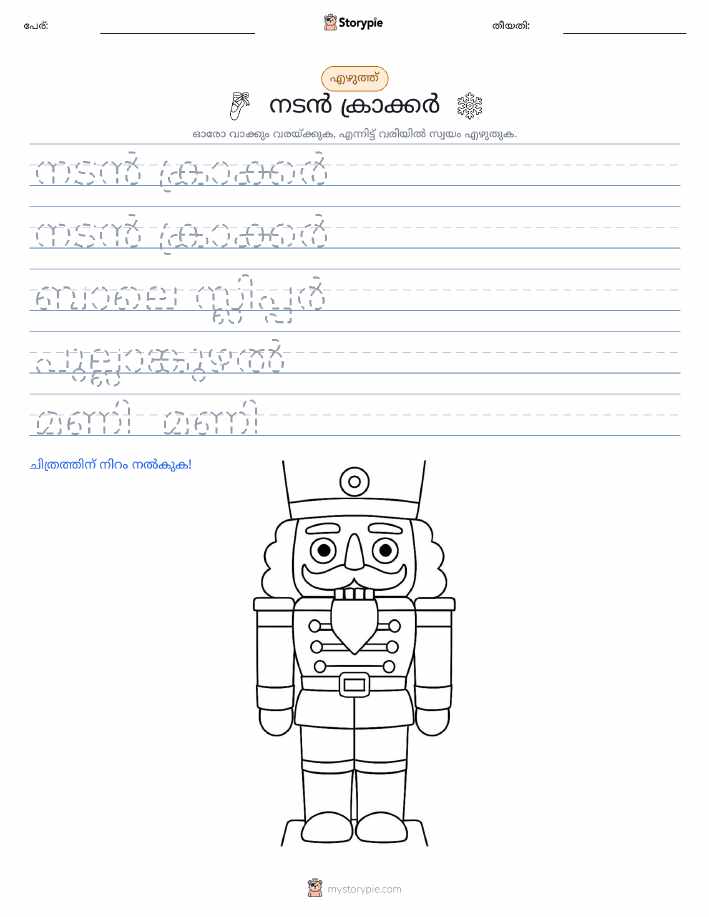 പേര്:
Storypie
തീയതി:
എഴുത്ത്
നടൻ ക്രാക്കർ
ഓരോ വാക്കും വരയ്ക്കുക, എന്നിട്ട് വരിയിൽ സ്വയം എഴുതുക.
നടൻ ക്രാക്കർ
നടൻ ക്രാക്കർ
ബാലെ സ്ലിപ്പർ
പുല്ലാങ്കുഴൽ
മണി മണി
ചിത്രത്തിന് നിറം നൽകുക!
mystorypie.com